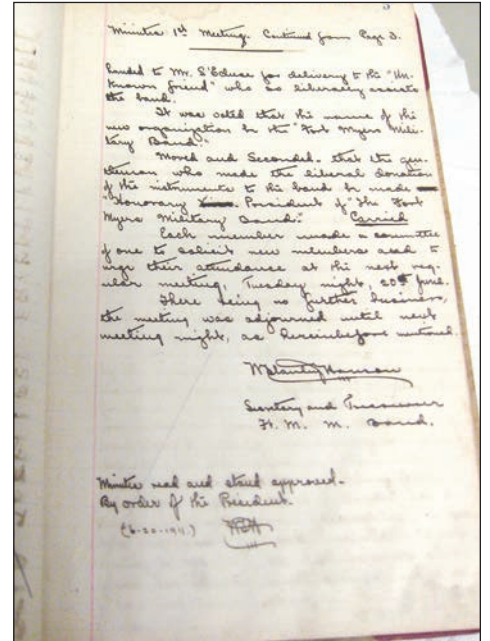 Minutes 1st Meeting. Continued from Page 3.
handed to Mr. for delivery to the "Un-
known friend" who so liberally assists
the band.
It was voted that the name of the
new organization be the "Fort Myers Mili-
tary Band."
Moved and Seconded - that the gen-
tleman who made the liberal donation
of the instruments to the band be made
"Honorary President of "The Fort
Myers Military Band." Carried
Each member made a committee
of one to solicit new members and to
urge their attendance at the next reg-
ular meeting, Tuesday night, 20th
There being no further business,
the meeting was adjourned until next
meeting night, as hereinbefore mentioned.
W Stanley Hanson
Secretary and Treasurer
Ft. M. M. Band.
Minutes read and stand approved.
By order of the President.
(6-20-1911)